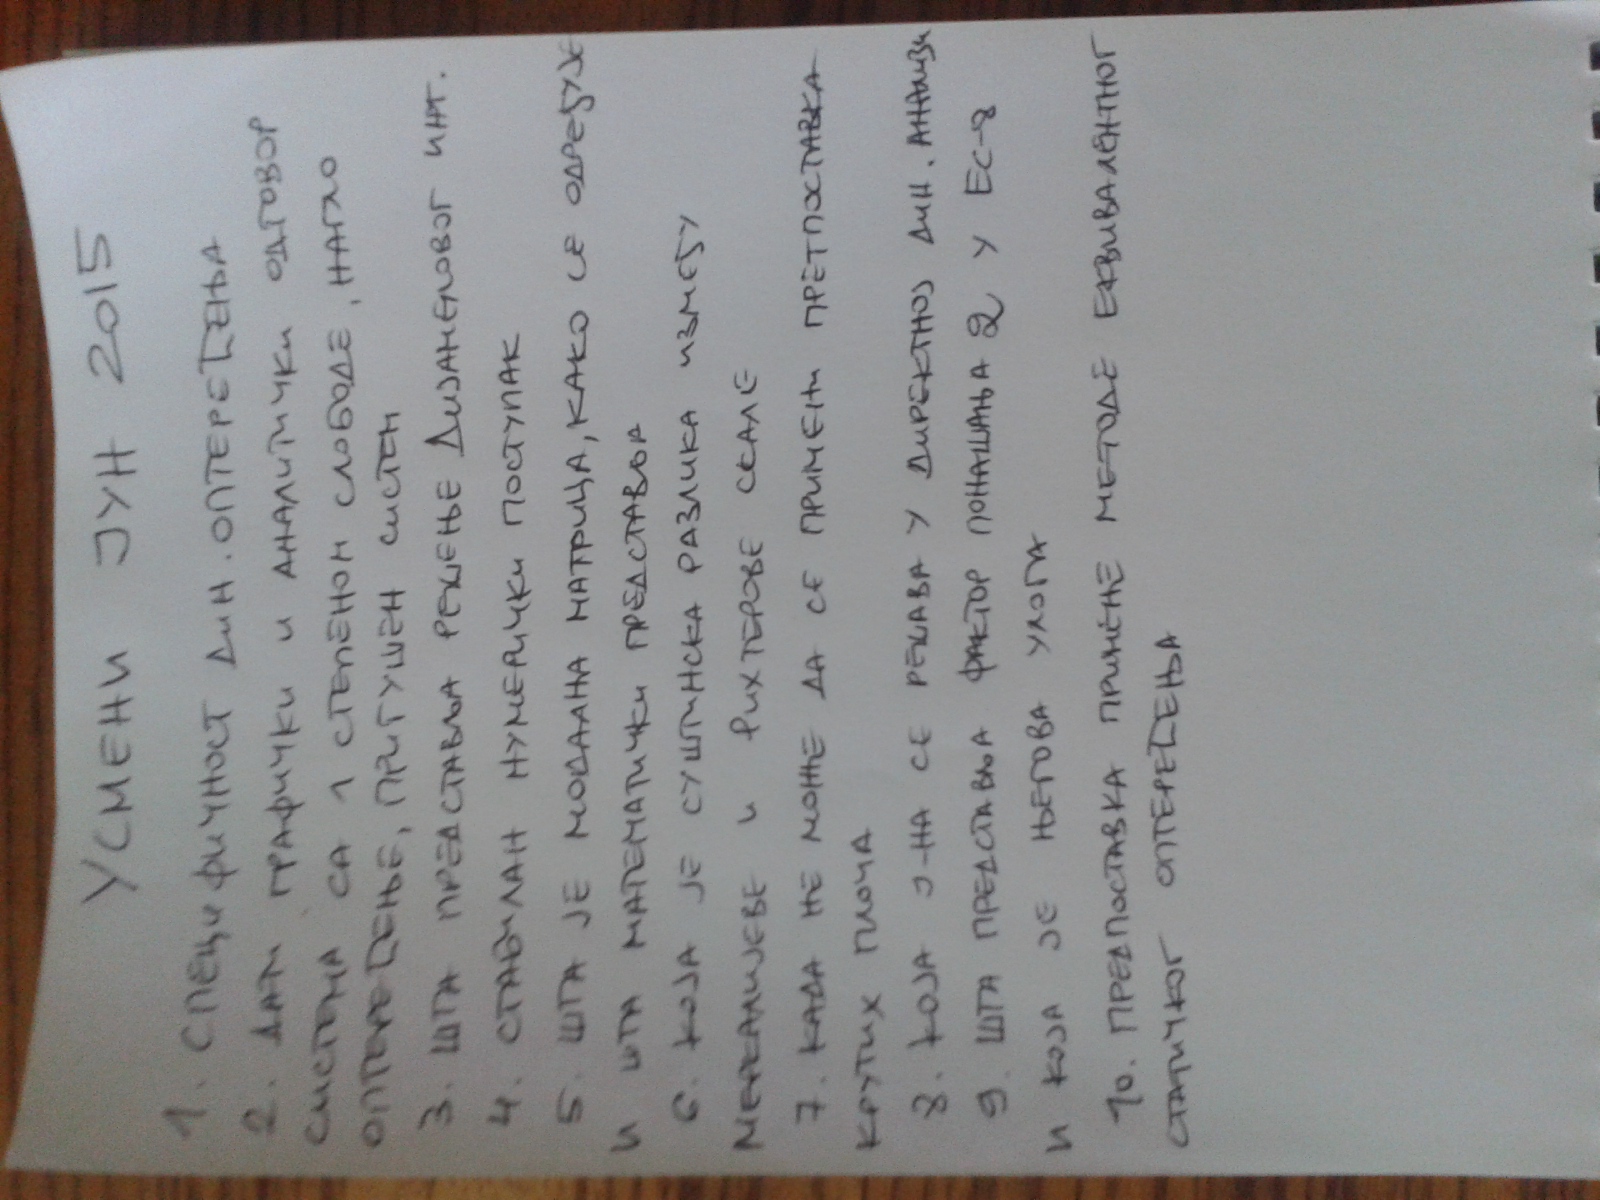 УСМЕНИ ЈУН 2015
1. СПЕЦИФИЧНОСТ ДИН. ОПТЕРЕЋЕЊА
2. ДАТИ ГРАФИЧКИ И АНАЛИТИЧКИ ОДГОВОР
СИСТЕМА СА 1 СТЕПЕНОМ СЛОБОДЕ, НАГЛО
ОПТЕРЕЋЕЊЕ, ПРИГУШЕН СИСТЕМ
3. ШТА ПРЕДСТАВЉА РЕШЕЊЕ ДИЈАМЕЛОВОГ ИНТ.
4. СТАБИЛАН НУМЕРИЧКИ ПОСТУПАК
5. ШТА ЈЕ МОДАЛНА МАТРИЦА, КАКО СЕ ОДРЕЂУЈЕ
И ШТА МАТЕМАТИЧКИ ПРЕДСТАВЉА
6. КОЈА ЈЕ СУШТИНСКА РАЗЛИКА ИЗМЕЂУ
МЕРКАЛИЈЕВЕ И РИХТЕРОВЕ СКАЛЕ
7. КАДА НЕ МОЖЕ ДА СЕ ПРИМЕНИ ПРЕТПОСТАВКА
КРУТИХ ПЛОЧА
8. КОЈА Ј-НА СЕ РЕШАВА У ДИРЕКТНОЈ ДИН. АНАЛИЗИ
9. ШТА ПРЕДСТАВЉА ФАКТОР ПОНАШАЊА Q У ЕС-8
И КОЈА ЈЕ ЊЕГОВА УЛОГА
10. ПРЕДПОСТАВКА ПРИМЕНЕ МЕТОДЕ ЕКВИВАЛЕНТНОГ
СТАТИЧКОГ ОПТЕРЕЋЕЊА